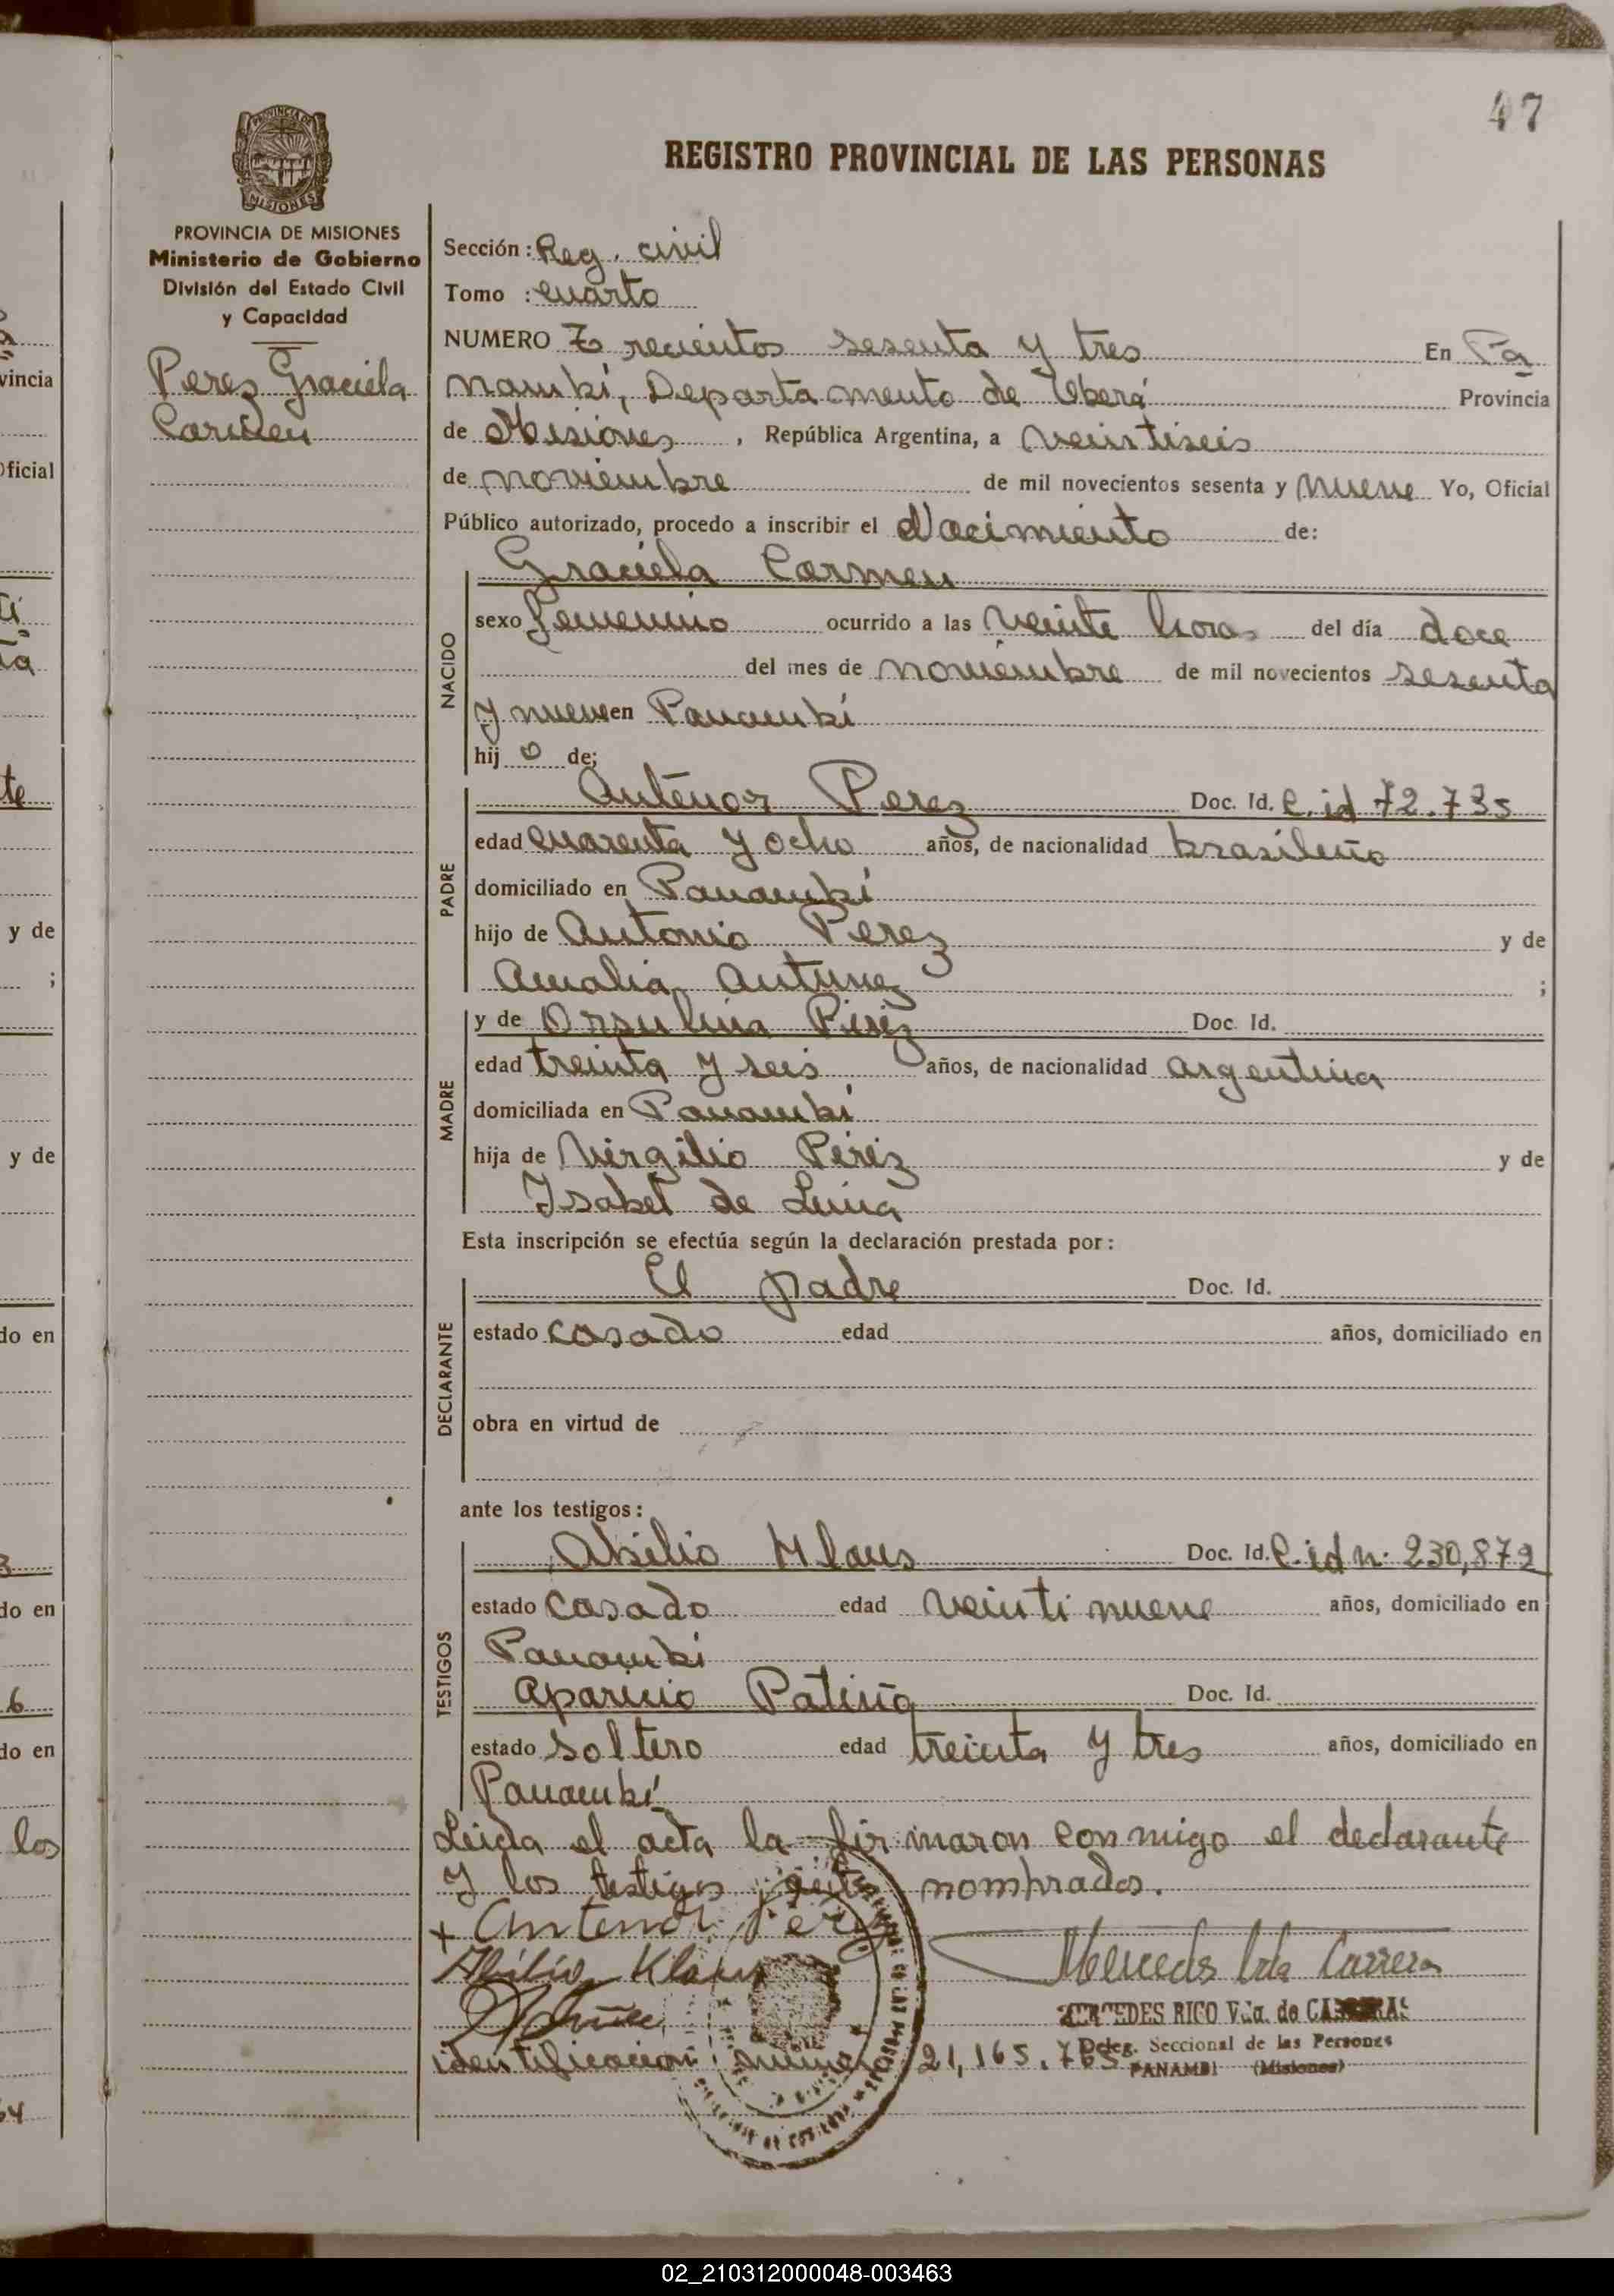 47
REGISTRO PROVINCIAL DE LAS PERSONAS
PROVINCIA DE MISIONES
Ministerio de Gobierno
División del Estado Civil
y Capacidad
Perez Graciela
Carmen
Sección : Reg. civil
Tomo : cuarto
NUMERO Trecientos sesenta y tres En Pa
nambí, Departamento de Oberá Provincia
de Misiones, República Argentina, a veintiseis
de noviembre de mil novecientos sesenta y nueve Yo, Oficial
Público autorizado, procedo a inscribir el Nacimiento de:
Graciela Carmen
NACIDO
sexo femenino ocurrido a las veinte horas del día doce
del mes de noviembre de mil novecientos sesenta
y nueve en Panambí
hij a de;
PADRE
Antenor Perez Doc. Id. C. id 72.735
edad cuarenta y ocho años, de nacionalidad brasileño
domiciliado en Panambí
hijo de Antonio Perez y de
Amalia Antunez ;
MADRE
y de Orsulina Piriz Doc. Id.
edad treinta y seis años, de nacionalidad argentina
domiciliada en Panambí
hija de Virgilio Piriz y de
Isabel de Lima
Esta inscripción se efectúa según la declaración prestada por:
DECLARANTE
El padre Doc. Id.
estado casado edad años, domiciliado en
obra en virtud de
ante los testigos:
TESTIGOS
Abilio Klaus Doc. Id. C. id n. 230,872
estado casado edad veinti nueve años, domiciliado en
Panambí
Aparicio Patiño Doc. Id.
estado soltero edad treinta y tres años, domiciliado en
Panambí
Leida el acta la firmaron conmigo el declarante
y los testigos nombrados.
+ Antenor Perez
Abilio Klaus
Mercedes Vda Carrera
MERCEDES RICO Vda. de CARRERAS
Deleg. Seccional de las Personas
PANAMBI (Misiones)
identificacion numero 21,165.765
vincia
Oficial
y de
;
y de
do en
do en
6
do en
los
02_210312000048-003463